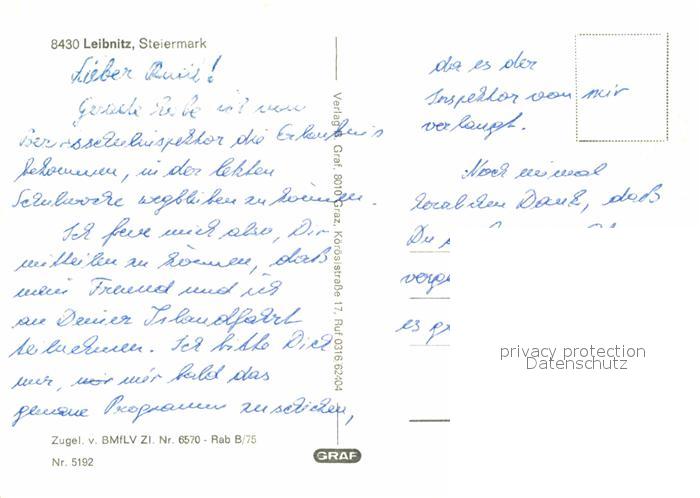 8430 Leibnitz, Steiermark
Lieber
Gerade habe ich vom
Berufsschulinspektor die Erlaubnis
bekommen, in der letzten
Schulwoche wegbleiben zu können.
Ich freue mich also, Dir
mitteilen zu können, daß
mein Freund und ich
an Deiner Islandfahrt
teilnehmen. Ich bitte Dich
nur, mir bald das
genaue Programm zu schicken,
Zugel. v. BMfLV Zl. Nr. 6570 - Rab B/75
Nr. 5192
Verlag Graf, 8010 Graz, Körösistraße 17, Ruf 0316/62404
GRAF
da es der
Inspektor von mir
verlangt.
Noch einmal
Dank, daß
Du
es
privacy protection
Datenschutz